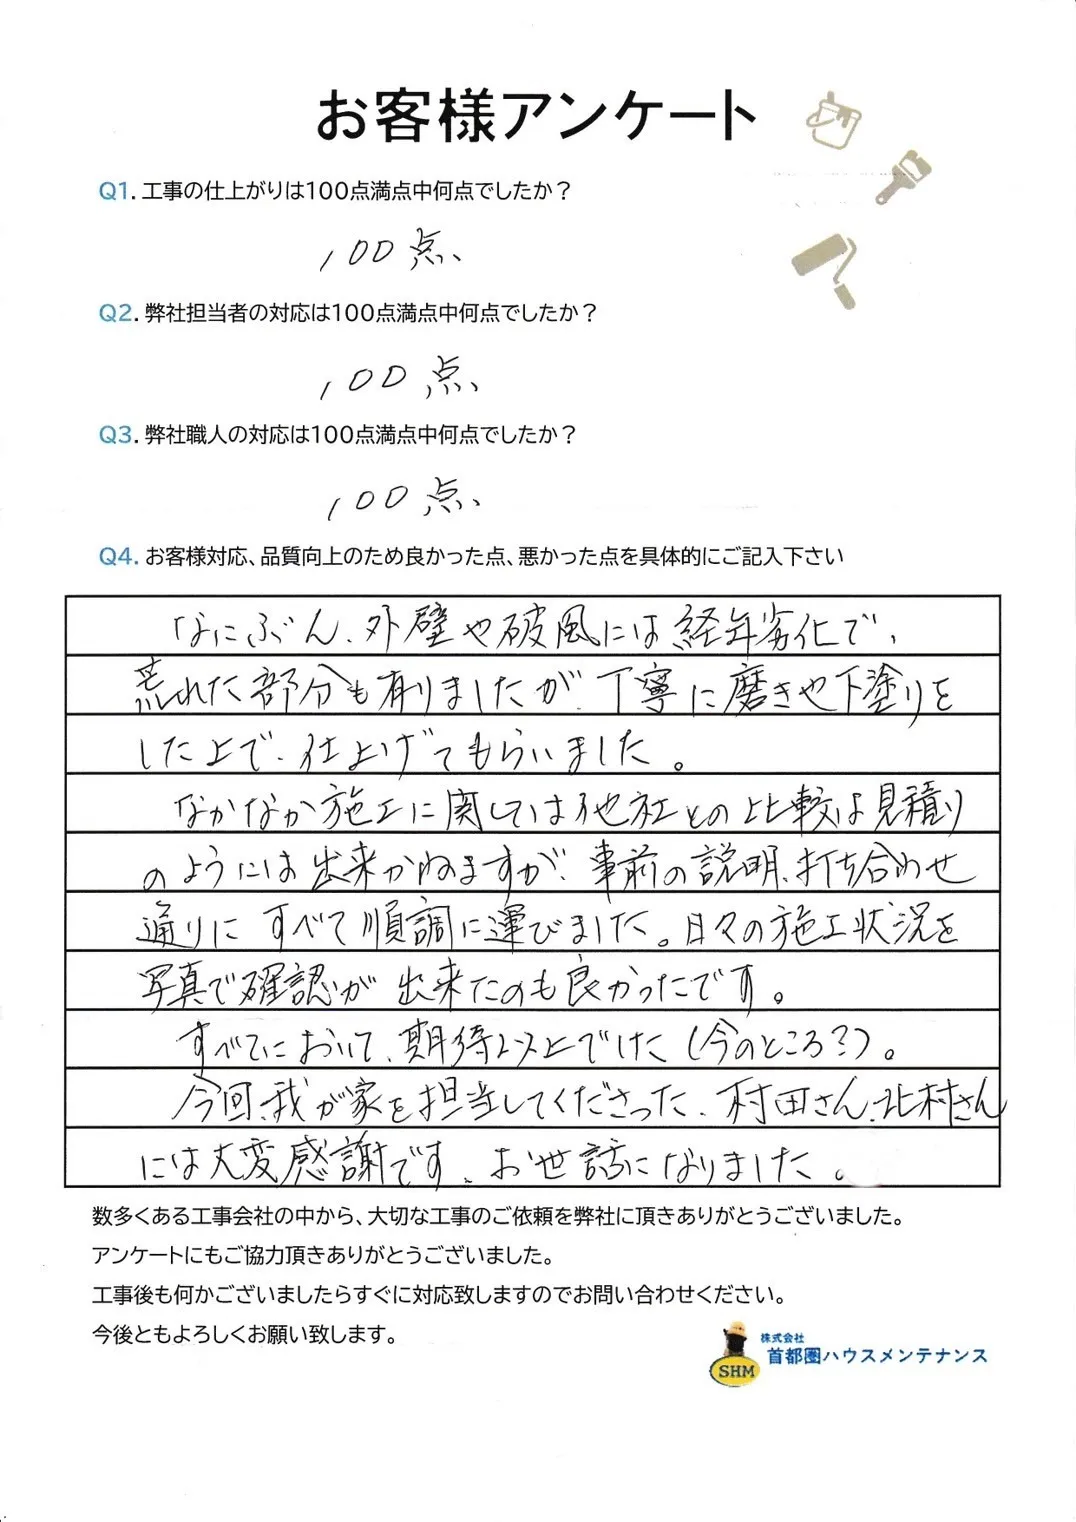 お客様アンケート
Q1. 工事の仕上がりは100点満点中何点でしたか？
100点、
Q2. 弊社担当者の対応は100点満点中何点でしたか？
100点、
Q3. 弊社職人の対応は100点満点中何点でしたか？
100点、
Q4. お客様対応、品質向上のため良かった点、悪かった点を具体的にご記入下さい
なにぶん、外壁や破風には経年劣化で、
荒れた部分も有りましたが、丁寧に磨きや下塗りを
した上で、仕上げてもらいました。
なかなか施工に関しては他社との比較は見積り
のようには出来かねますが、事前の説明、打ち合わせ
通りに すべて順調に運びました。日々の施工状況を
写真で確認が 出来たのも良かったです。
すべてにおいて、期待以上でした（今のところ？）。
今回、我が家を担当してくださった、村田さん、北村さん
には大変感謝です、お世話になりました。
数多くある工事会社の中から、大切な工事のご依頼を弊社に頂きありがとうございました。
アンケートにもご協力頂きありがとうございました。
工事後も何かございましたらすぐに対応致しますのでお問い合わせください。
今後ともよろしくお願い致します。
株式会社
首都圏ハウスメンテナンス
SHM